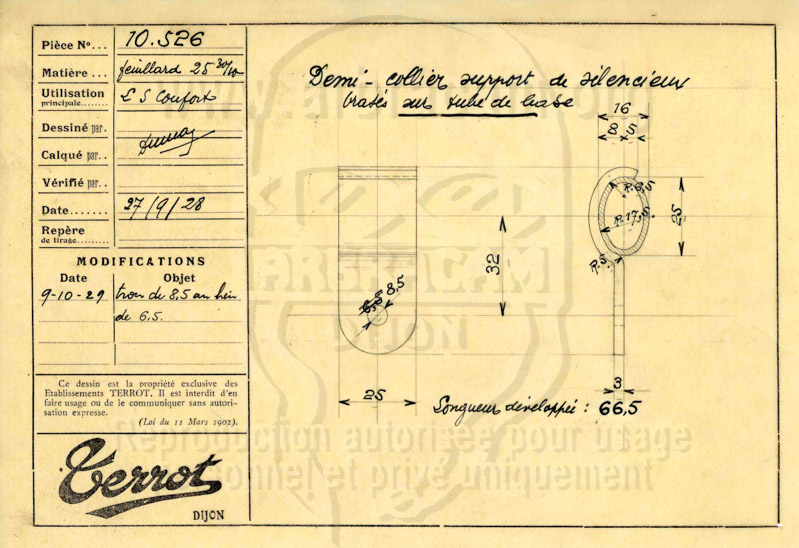 Pièce N°... 10.526
Matière ... feuillard 25 30/10
Utilisation
principale........ LS Confort
Dessiné par.
Calqué par..
Vérifié par..
Date....... 27/9/28
Repère
de tirage.
MODIFICATIONS
Date Objet
9-10-29 trou de 8,5 au lieu
de 6.5.
Ce dessin est la propriété exclusive des
Etablissements TERROT. Il est interdit d'en
faire usage ou de le communiquer sans autori-
sation expresse.
(Loi du 11 Mars 1902).
Terrot
DIJON
Demi-collier support de silencieux
brasés sur tube de base
16
8 5
R.6,5
R.17,5
25
R.5
32
8,5
6,5
25
3
Longueur développée : 66,5
ARBRACAM
DIJON
Reproduction autorisée pour usage
personnel et privé uniquement